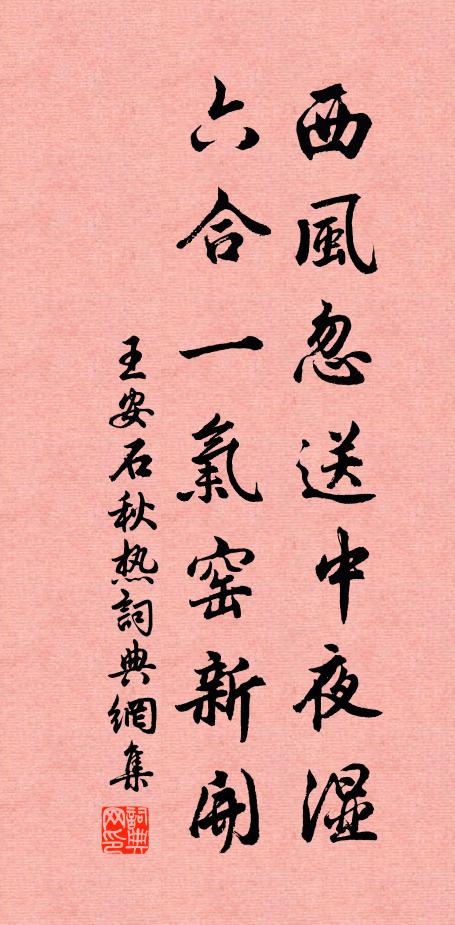 西風忽送中夜濕
六合一氣窑新開
王安石秋热詞典網集
詞典网印